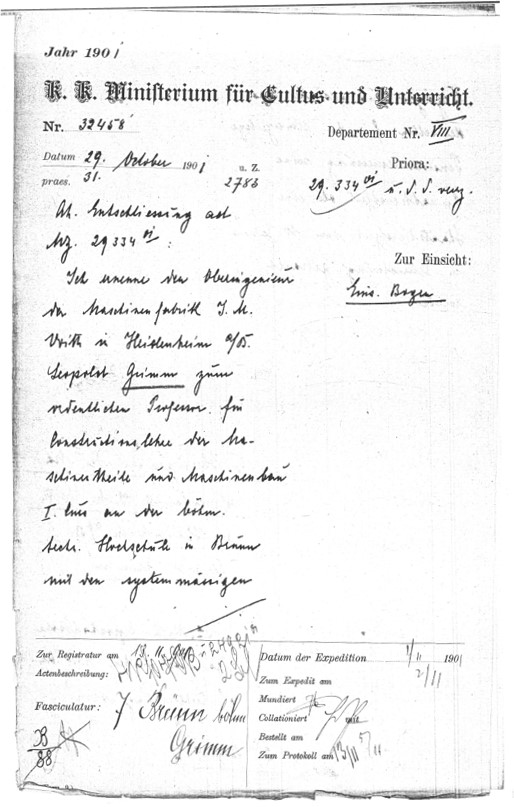 Jahr 1901
K. K. Ministerium für Cultus und Unterricht.
Nr. 32458
Departement Nr. VIII
Datum 29. October 1901
praes. 31.
u. Z.
2786
Priora:
29.334 u. s. s. verz.
Ah. Entschliessung ad
Mz. 29334 :
Zur Einsicht:
Eins. Bogen
Ich ernenne den Oberingenieur
der Maschinenfabrik J. M.
Voith in Heidenheim a/B.
Leopold Grimm zum
ordentlichen Professor für
Constructionslehre der Ma-
schinentheile und Maschinenbau
I. Curs an der böhm.
techn. Hochschule in Brünn
mit den systemmässigen
Zur Registratur am 13. 11.
Actenbeschreibung:
Fasciculatur: 7 Brünn böhm
Grimm
B
88
Datum der Expedition 1/11 1901
Zum Expedit am 2/11
Mundiert
Collationiert mit
Bestellt am 5/11
Zum Protokoll am 13/11